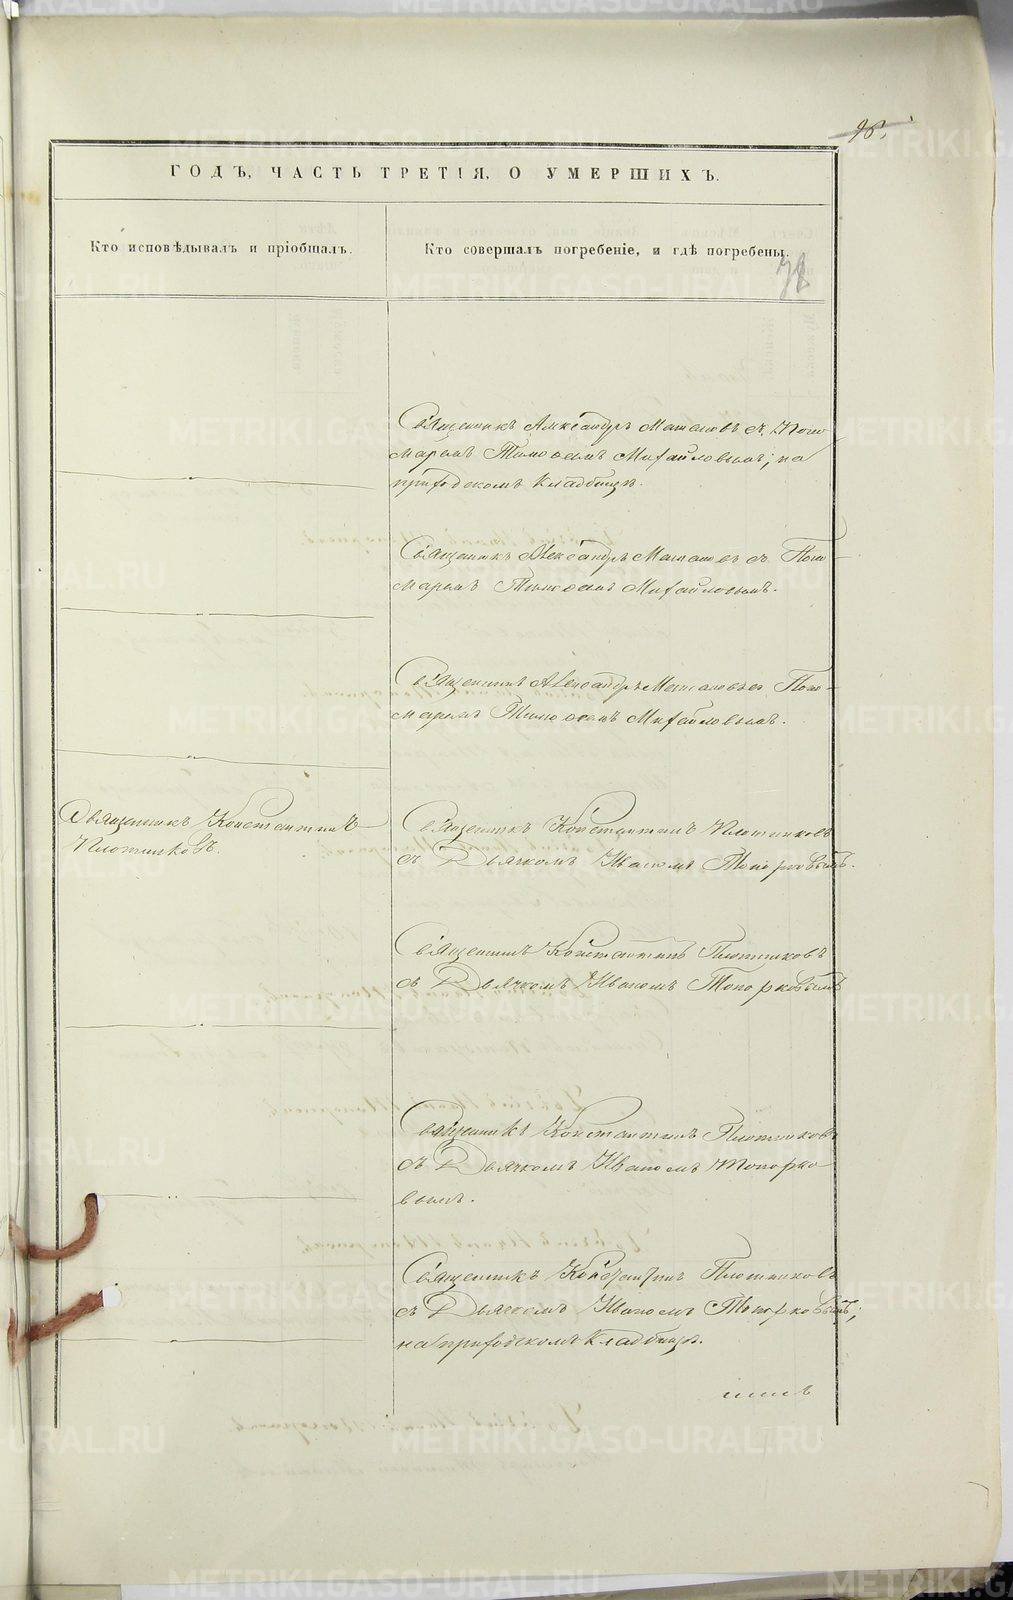 96.
ГОДЪ, ЧАСТЬ ТРЕТІЯ, О УМЕРШИХЪ.
Кто исповѣдывалъ и пріобщалъ.
Кто совершалъ погребеніе, и гдѣ погребены.
78
Священникъ Александръ Маталовъ съ Поно
маремъ Тимоѳеемъ Михайловымъ; на
приходскомъ кладбищѣ.
Священникъ Александръ Маталовъ съ Поно-
маремъ Тимоѳеемъ Михайловымъ.
Священникъ Александръ Маталовъ съ Поно-
маремъ Тимоѳеемъ Михайловымъ.
Священникъ Константинъ
Плотниковъ.
Священникъ Константинъ Плотниковъ
съ Дьячкомъ Иваномъ Топорковымъ.
Священникъ Константинъ Плотниковъ
съ Дьячкомъ Иваномъ Топорковымъ
Священникъ Константинъ Плотниковъ
съ Дьячкомъ Иваномъ Топорко
вымъ.
Священникъ Константинъ Плотниковъ
съ Дьячкомъ Иваномъ Топорковымъ;
на приходскомъ кладбищѣ.
METRIKI.GASO-URAL.RU